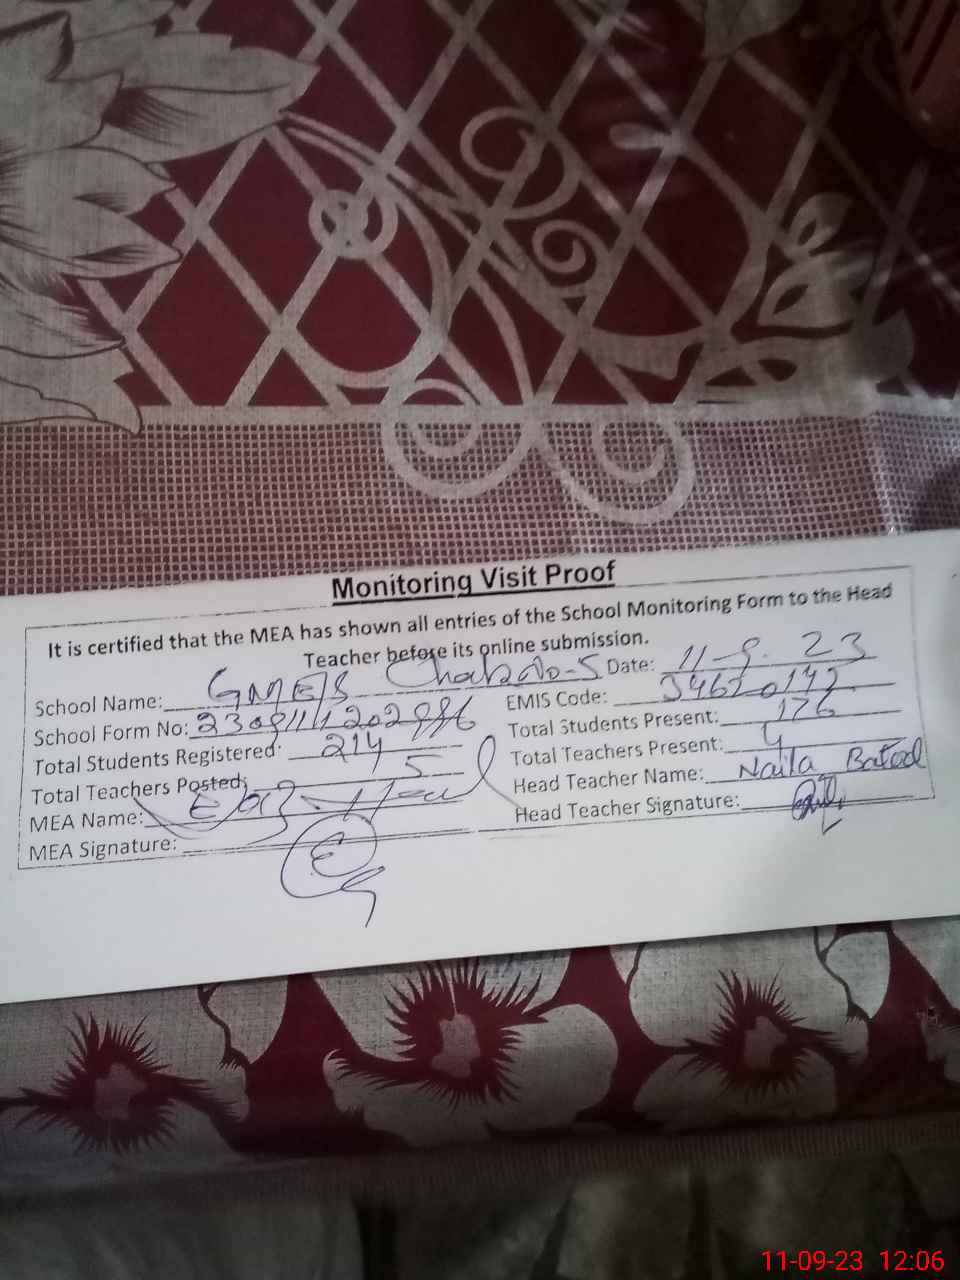 Monitoring Visit Proof
It is certified that the MEA has shown all entries of the School Monitoring Form to the Head
Teacher before its online submission.
School Name: GMES Date: 11-9-23
School Form No: EMIS Code: 34620142
Total Students Registered: 214 Total Students Present: 176
Total Teachers Posted: 5 Total Teachers Present: 4
MEA Name: Head Teacher Name: Naila Batool
MEA Signature: Head Teacher Signature:
11-09-23 12:06